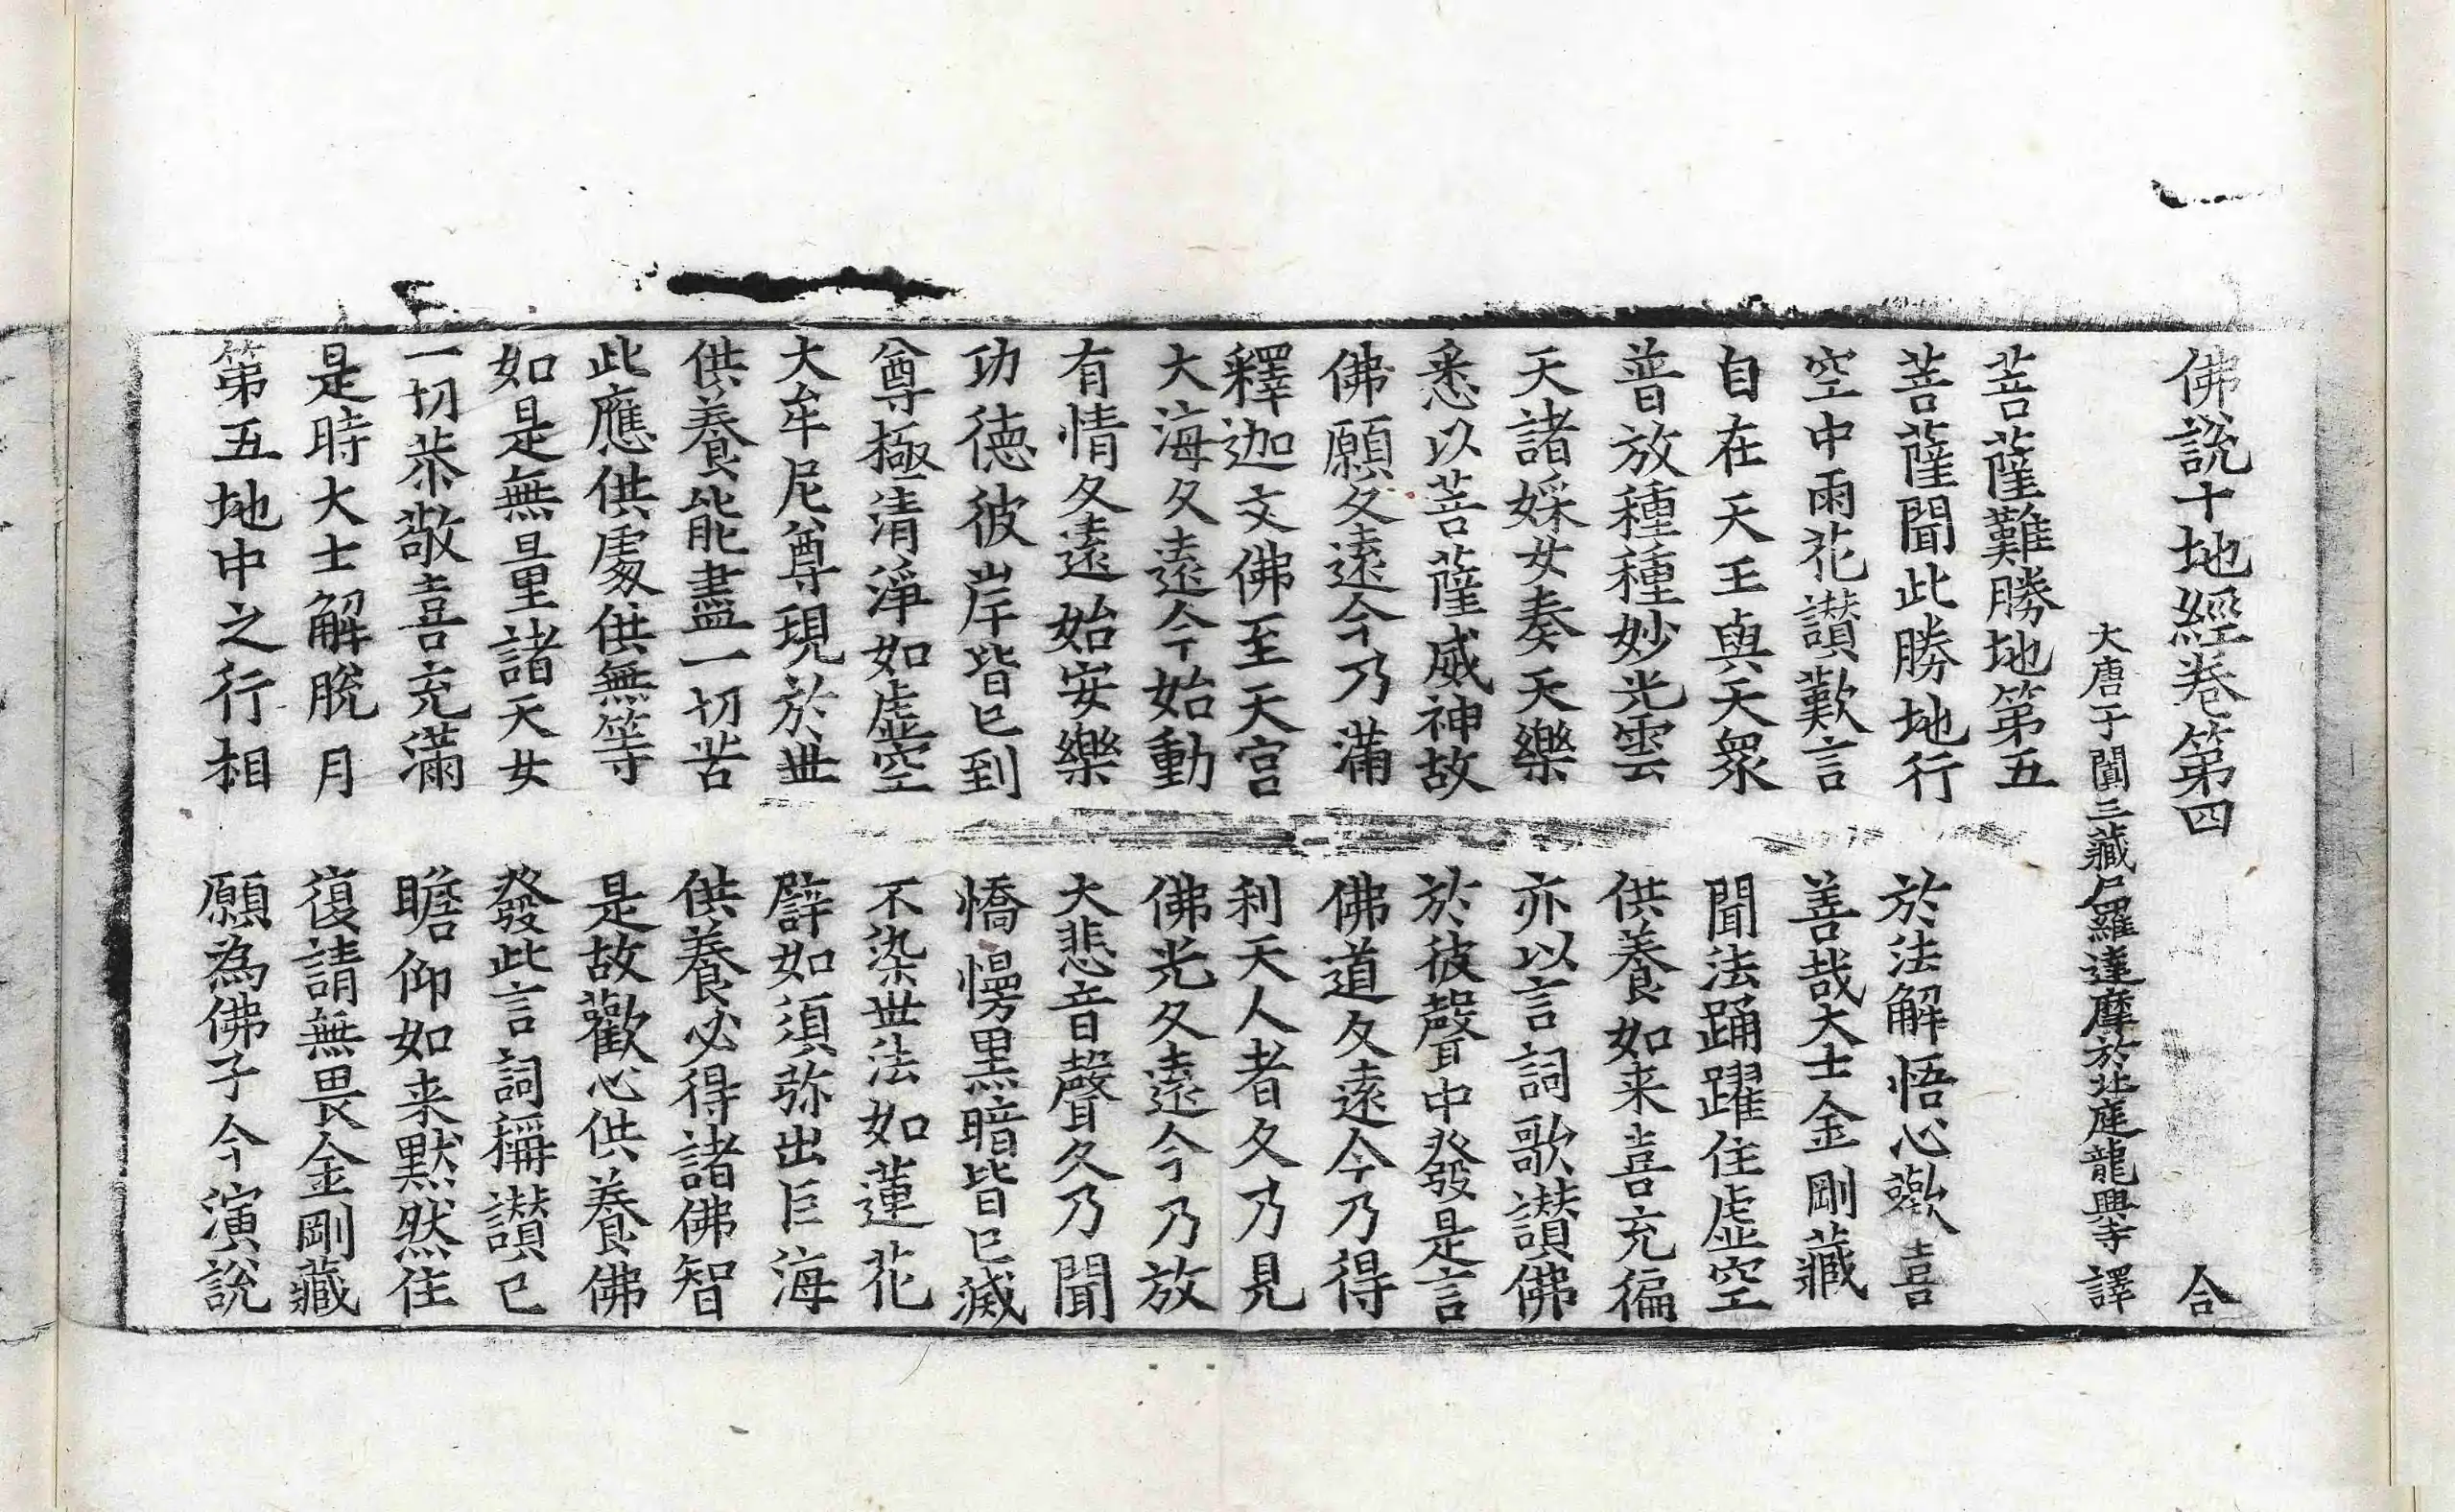 佛說十地經卷第四 合
大唐于闐三藏尸羅達摩於北庭龍興寺譯
菩薩難勝地第五
菩薩聞此勝地行 於法解悟心歡喜
空中雨花讃歎言 善哉大士金剛藏
自在天王與天衆 聞法踊躍住虛空
普放種種妙光雲 供養如来喜充徧
天諸婇女奏天樂 亦以言詞歌讃佛
悉以菩薩威神故 於彼聲中發是言
佛願久遠今乃滿 佛道久遠今乃得
釋迦文佛至天宮 利天人者久乃見
大海久遠今始動 佛光久遠今乃放
有情久遠始安樂 大悲音聲久乃聞
功德彼岸皆已到 憍慢黑暗皆已滅
尊極清淨如虛空 不染世法如蓮花
大牟尼尊現於世 譬如須弥出巨海
供養能盡一切苦 供養必得諸佛智
此應供處供無等 是故歡心供養佛
如是無量諸天女 發此言詞稱讃已
一切恭敬喜充滿 瞻仰如来默然住
是時大士解脫月 復請無畏金剛藏
第五地中之行相 願為佛子今演說